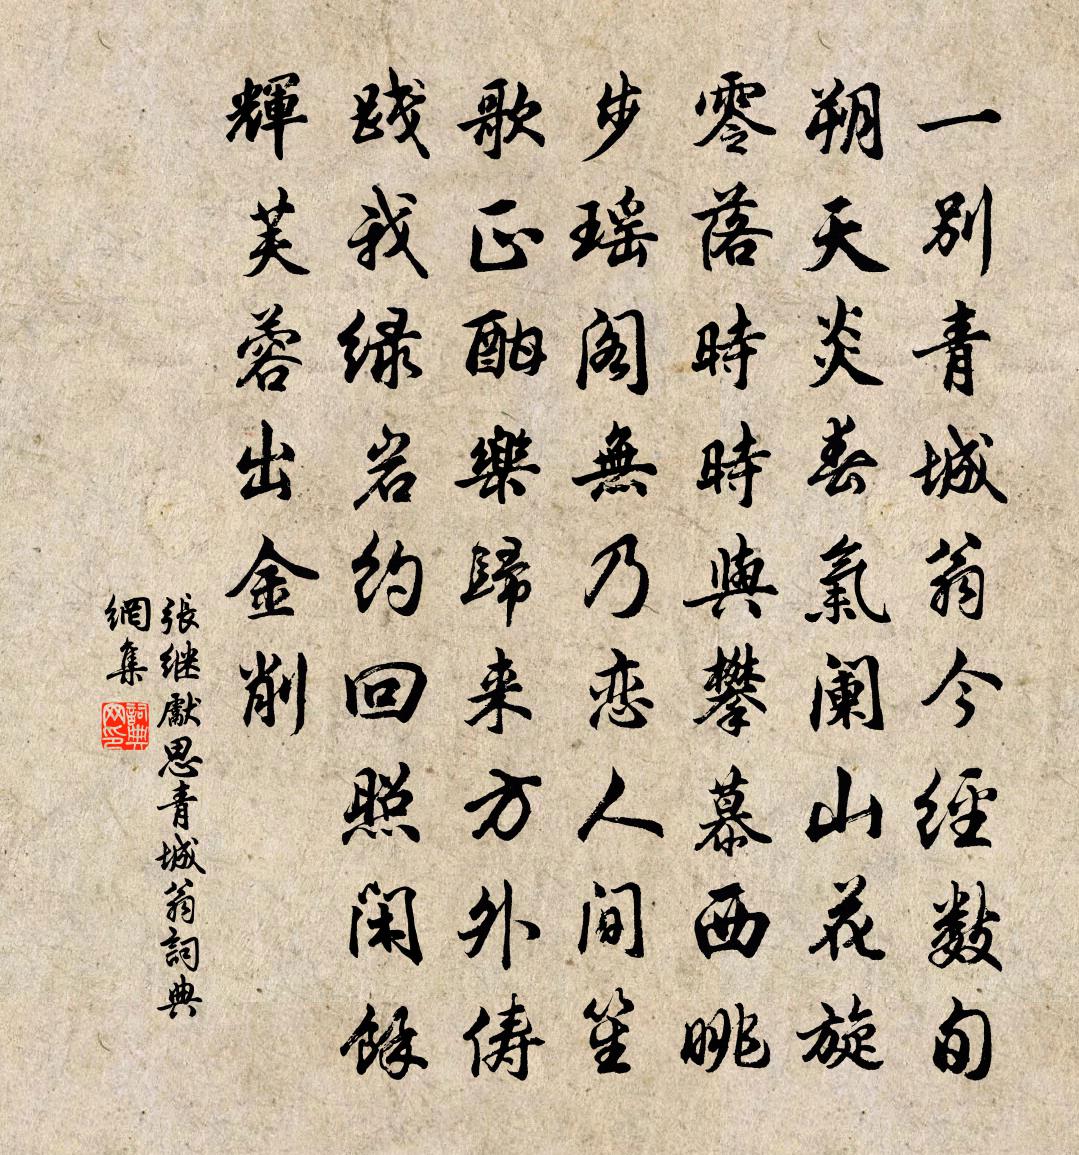 一别青城翁今經数旬
朔天炎春氣阑山花旋
零落時時與攀慕西眺
步瑶阁無乃恋人间笙
歌正酣樂歸来方外俦
践我绿岩约回照闲餘
輝芙蓉出金削
張继獻思青城翁詞典
網集
詞典网印